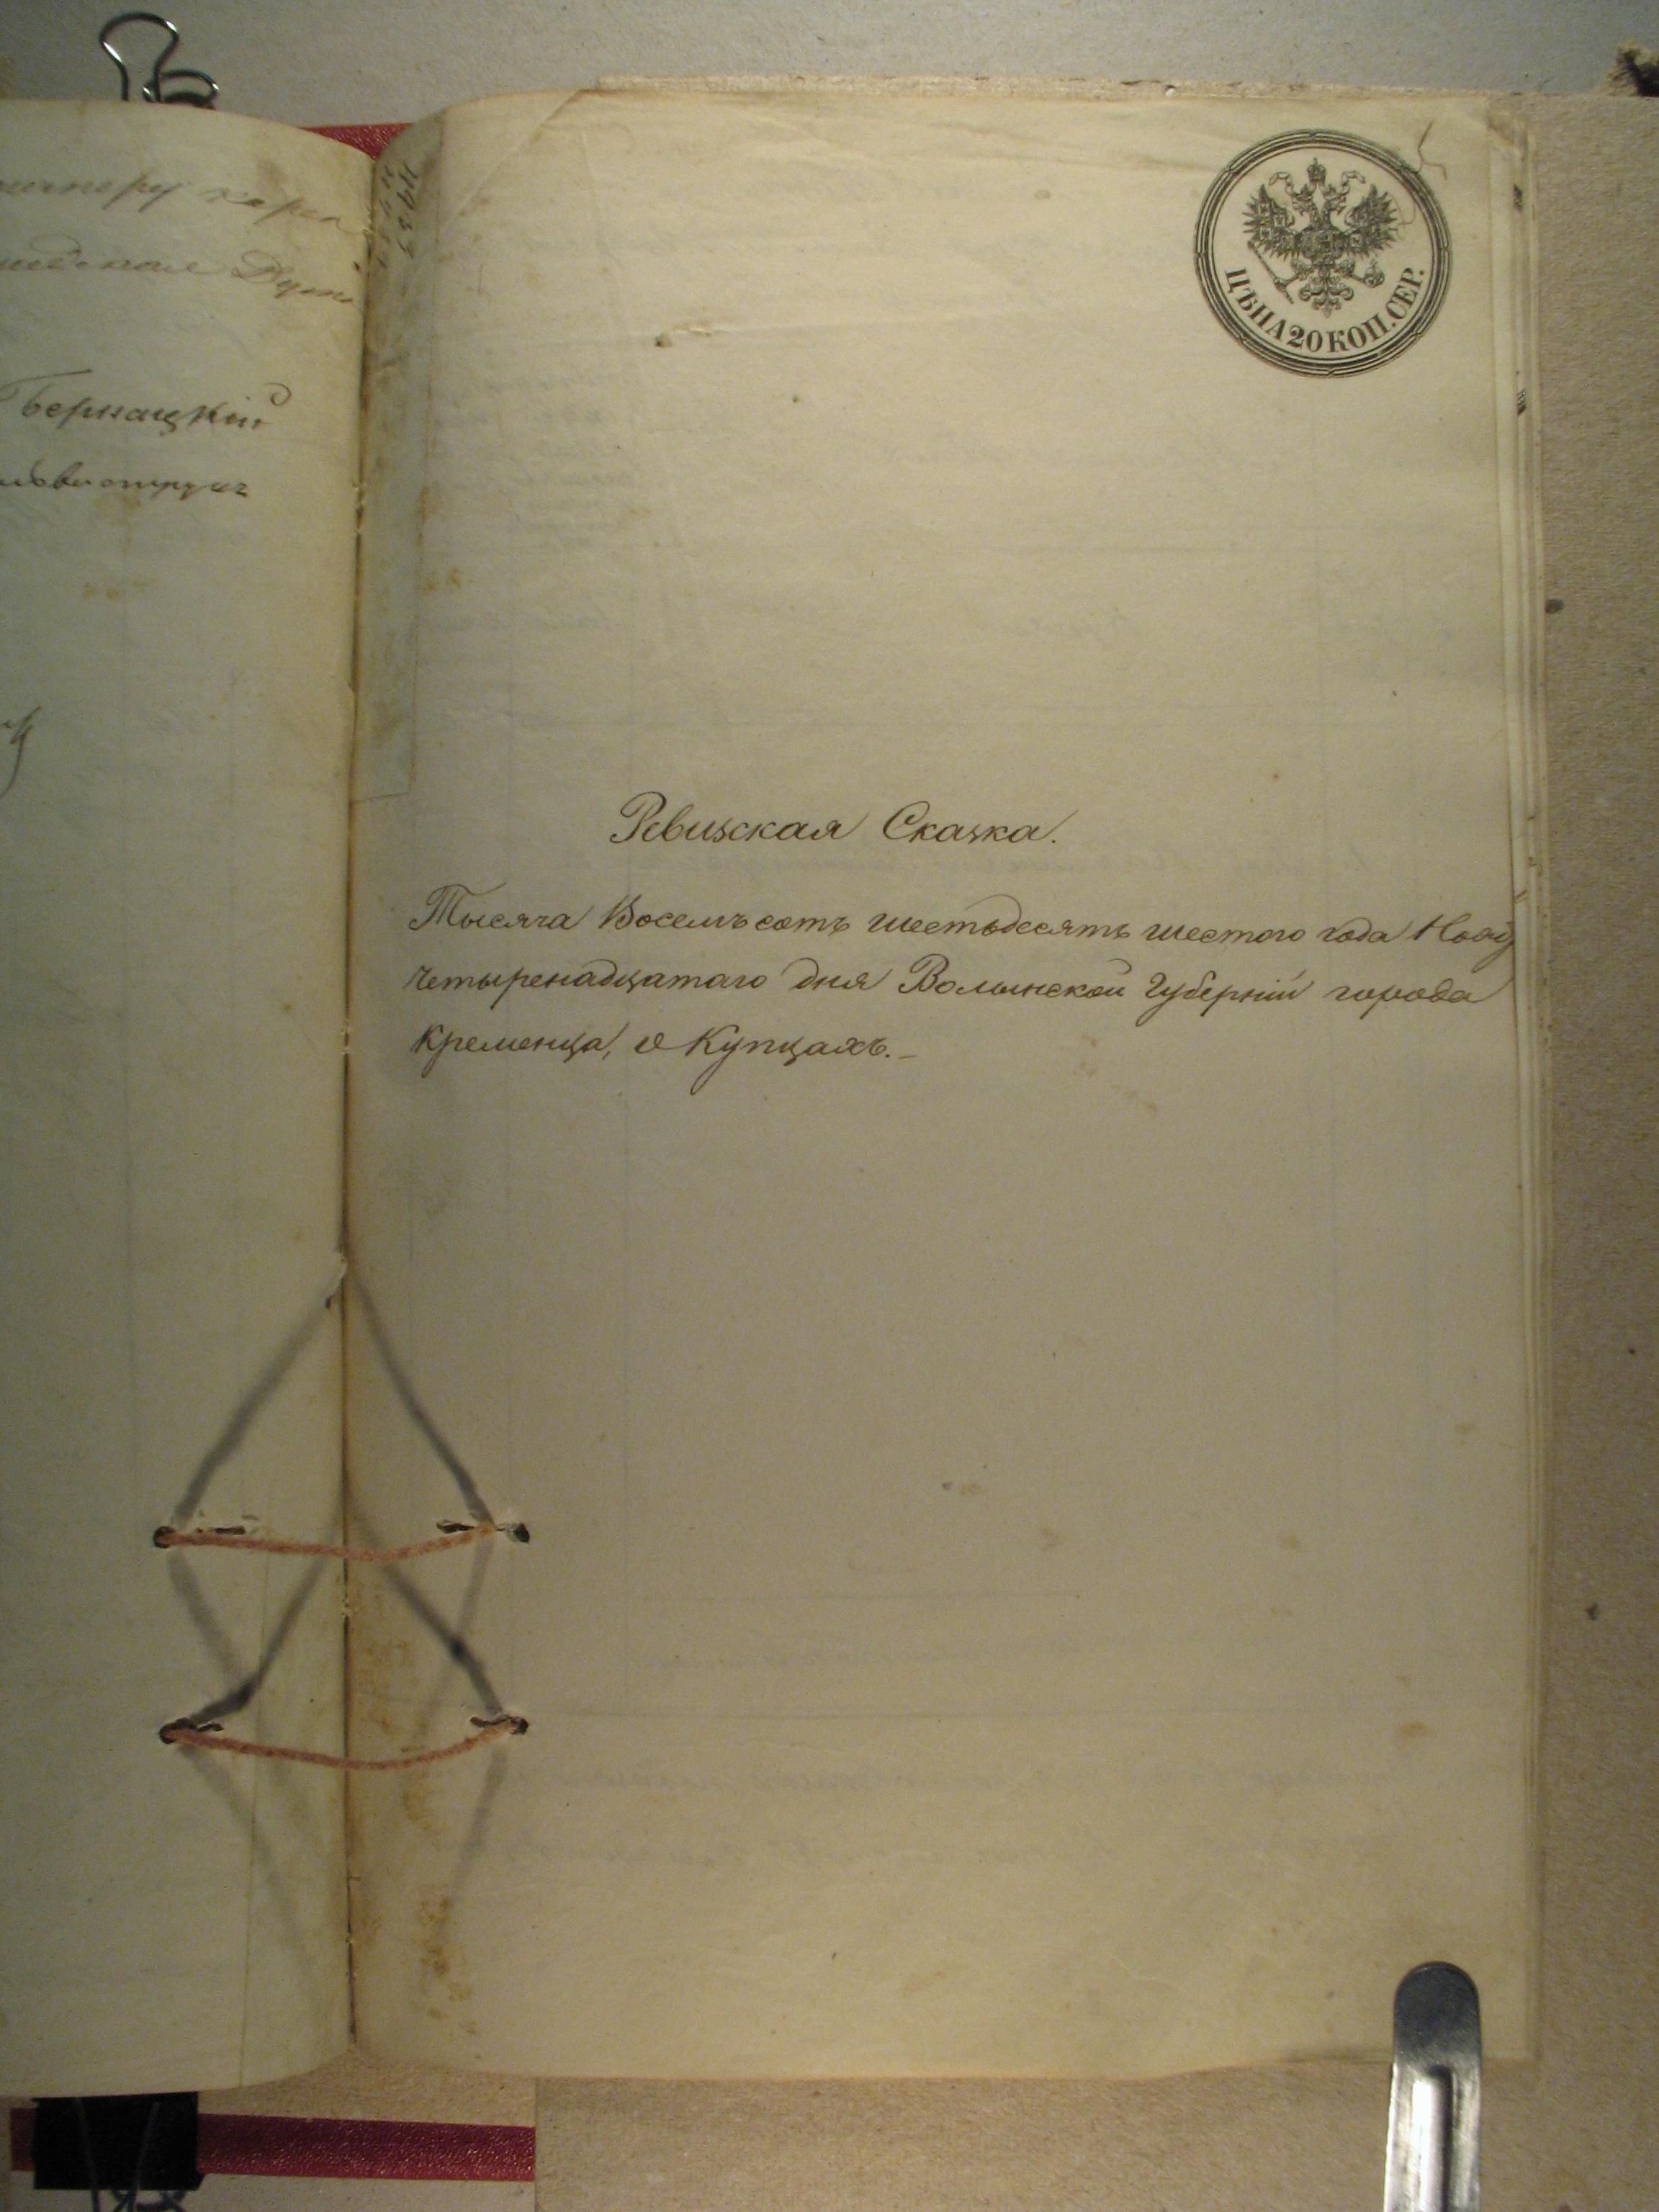 Бернацкій
ЦѢНА 20 КОП. СЕР.
Ревизская Сказка.
Тысяча Восемъ сотъ шестьдесятъ шестого года
четыренадцатаго дня Волынской Губерніи города
Кременца, о Купцахъ.